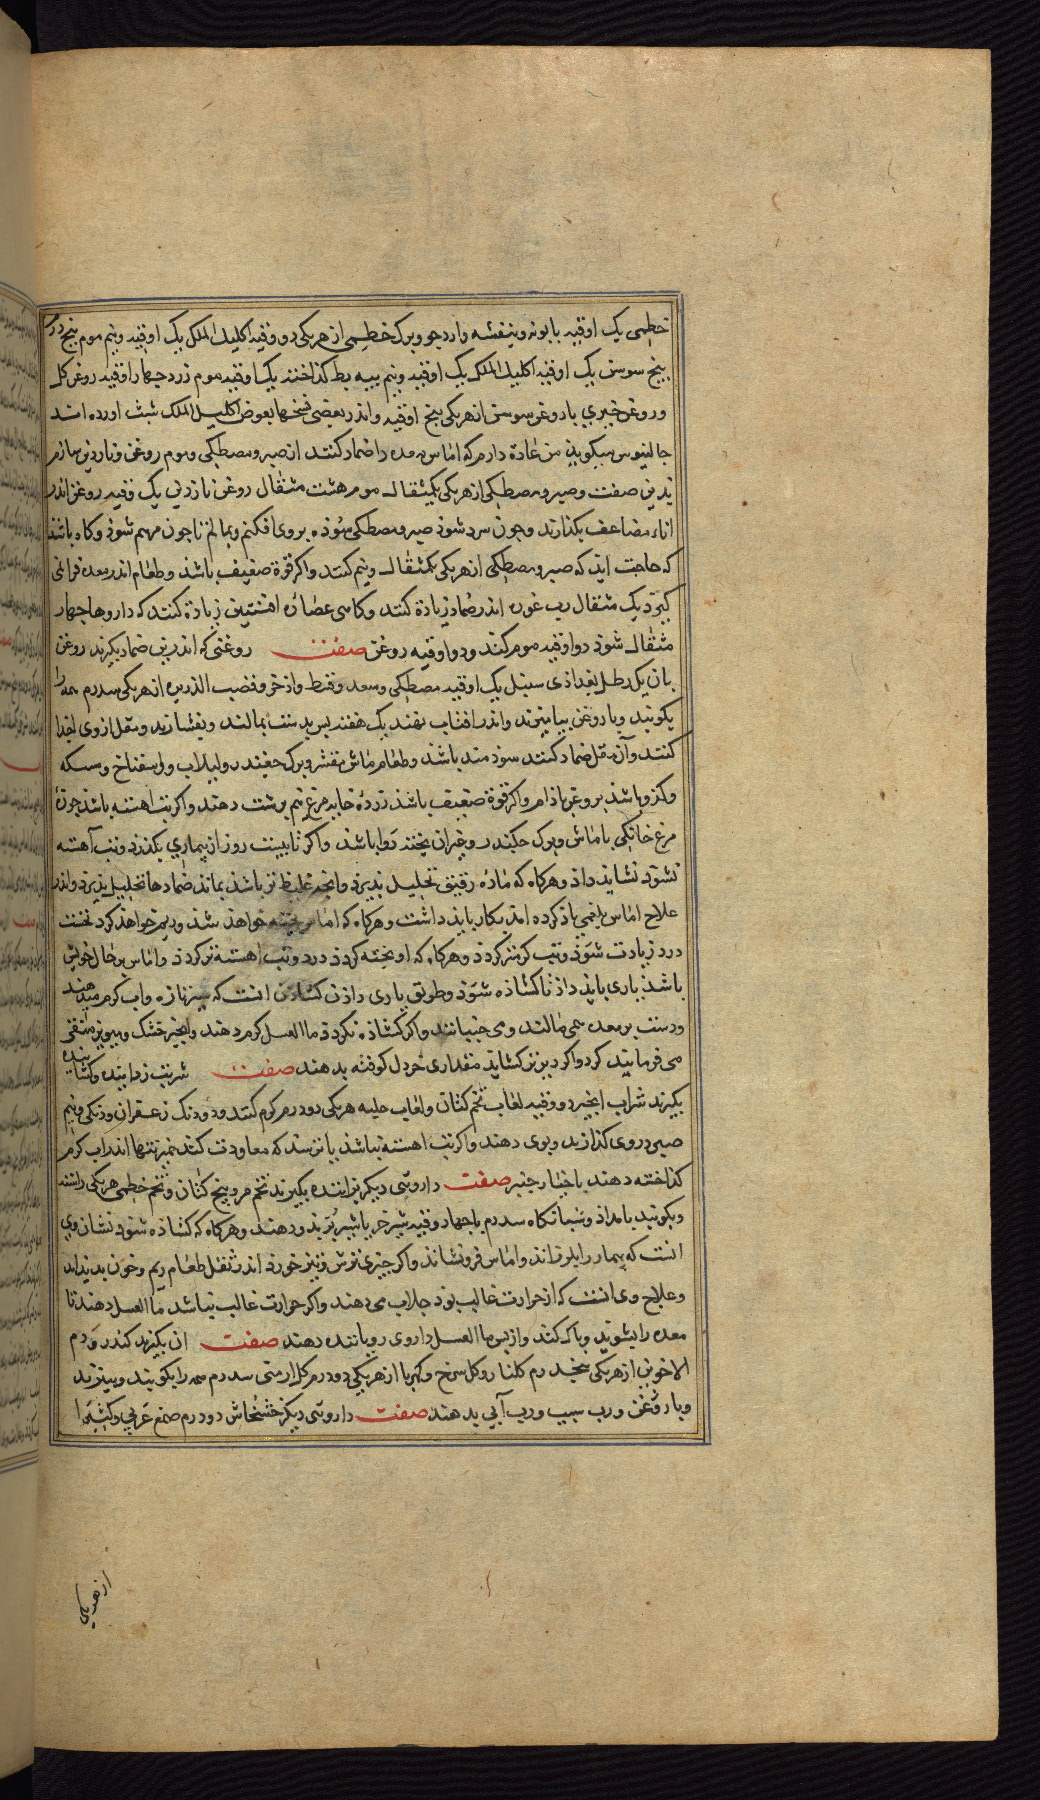 خطمی یک اوقیه بابونه و بنفشه و ارد جو و برک خطمی از هر یکی دو وقیه اکلیل الملک یک اوقیه و نیم موم پنج درم
بیخ سوسن یک اوقیه اکلیل الملک یک اوقیه و نیم پیه بط کذاخته یک اوقیه موم زرد چهار اوقیه روغن کل
و روغن خیری یا روغن سوسن از هر یکی پنج اوقیه و اندر بعضی نسخها بعوض اکلیل الملک شبث اورده اند
جالینوس میکوید من عادة دارم که اماس معده را ضماد کنند از صبر و مصطکی و موم و روغن ناردین سازم
بدین صفت و صبر و مصطکی از هر یکی یکمثقال موم هشت مثقال روغن ناردین یک وقیه روغن اندر
اناء مضاعف بکذارند و چون سرد شود صبر و مصطکی سوده بروی افکنم و بمالم تا چون مرهم شود و کاه باشد
که حاجت اید که صبر و مصطکی از هر یکی یکمثقال و نیم کنند و اکر قوة ضعیف باشد و طعام اندر معده قرار نمی
کیرد یک مثقال رب غوره اندر ضماد زیادة کنند و کاسی عصاره افسنتین زیادة کنند که داروها چهار
مثقال شود دو اوقیه موم کنند و دو اوقیه روغن صفت روغنی که اندرین ضماد بکیرند روغن
بان یک رطل بغدادی سنبل یک اوقیه مصطکی و سعد و قسط و اذخر و قصب الذریره از هر یکی سه درم همه را
بکوبند و با روغن بیامیزند و اندر افتاب نهند یک هفته پس بدست بمالند و بفشارند و مقل ازوی اجدا
کنند و آن مقل ضماد کنند سودمند باشد و طعام ماش مقشر و برک چغندر و لبلاب و اسفناخ و سکه
و کدو باشد بروغن باذام و اکر قوة ضعیف باشد زرده خایه مرغ نیم برشت دهند و اکر تب اهسته باشد جوزۀ
مرغ خانکی با ماش و برک چکندر و غیر ان پخته روا باشد و اکر تا بیست روز از بیماری بکذرد و تب آهسته
نشود نشاید داد و هرکاه که ماده رقیق تحلیل پذیرد و انچه غلیظ تر باشد بماند ضمادها تحلیل پذیرد و اندر
علاج اماس بلغمی یاذ کرده اند بکار باید داشت و هرکاه که اماس پخته خواهد شد و ریم خواهد کرد نخست
درد زیادت شود و تب کرمتر کردد و هرکاه که او پخته کردد درد و تب اهسته تر کردد و اماس بر حال خویش
باشد یاری باید داد تا کشاذه شود و طریق یاری داذن کشاذن انست که شیر تازه و اب کرم میدهند
و دست بر معده همی مالند و می جنبانند و اکر کشاذه نکردد ما العسل کرم دهند و انجیر خشک و مویز منقی
می فرمایند کرد و اکر دیرتر کشاید مقداری خردل کوفته بدهند صفت شربت زدایننده و کشاینده
بکیرند شراب انجیر دو وقیه لعاب تخم کتان و لعاب حلبه هر یکی دو درم کرم کنند و دو دنک زعفران و دنکی و نیم
صبر در وی کذارند و بوی دهند و اکر تب اهسته نباشد یا ترسند که معاودت کند تمر تنها اندر اب کرم
کذاخته دهند با خیار چنبر صفت داروئی دیکر پزاننده بکیرند تخم مرو و بیخ کتان و تخم خطمی هر یکی راستا راست
و بکوبند بامداد و شبانکاه سه درم با چهار وقیه شیر خر یا شیر بز بدهند و هرکاه که کشاذه شود نشان وی
انست که بیمار را بلرزاند و اماس فرونشاند و اکر چیزی ترش و تیز خورد اندر ثفل طعام ریم و خون بدید اید
و علاج وی انست که از حرارت غالب بود جلاب می دهند و اکر حرارت غالب نباشد ما العسل دهند تا
معده را بشوید و پاک کند و از پس ما العسل داروی رویاننده دهند صفت ان بکیرند کندر و دم
الاخوین از هر یکی پنج درم کلنار و کل سرخ و کهربا از هر یکی دو درم کل ارمنی سه درم همه را بکوبند و ببیزند
و با روغن و رب سیب و رب آبی بدهند صفت داروئی دیکر خشخاش دو درم صمغ عربی و کتیرا
از هر یکی